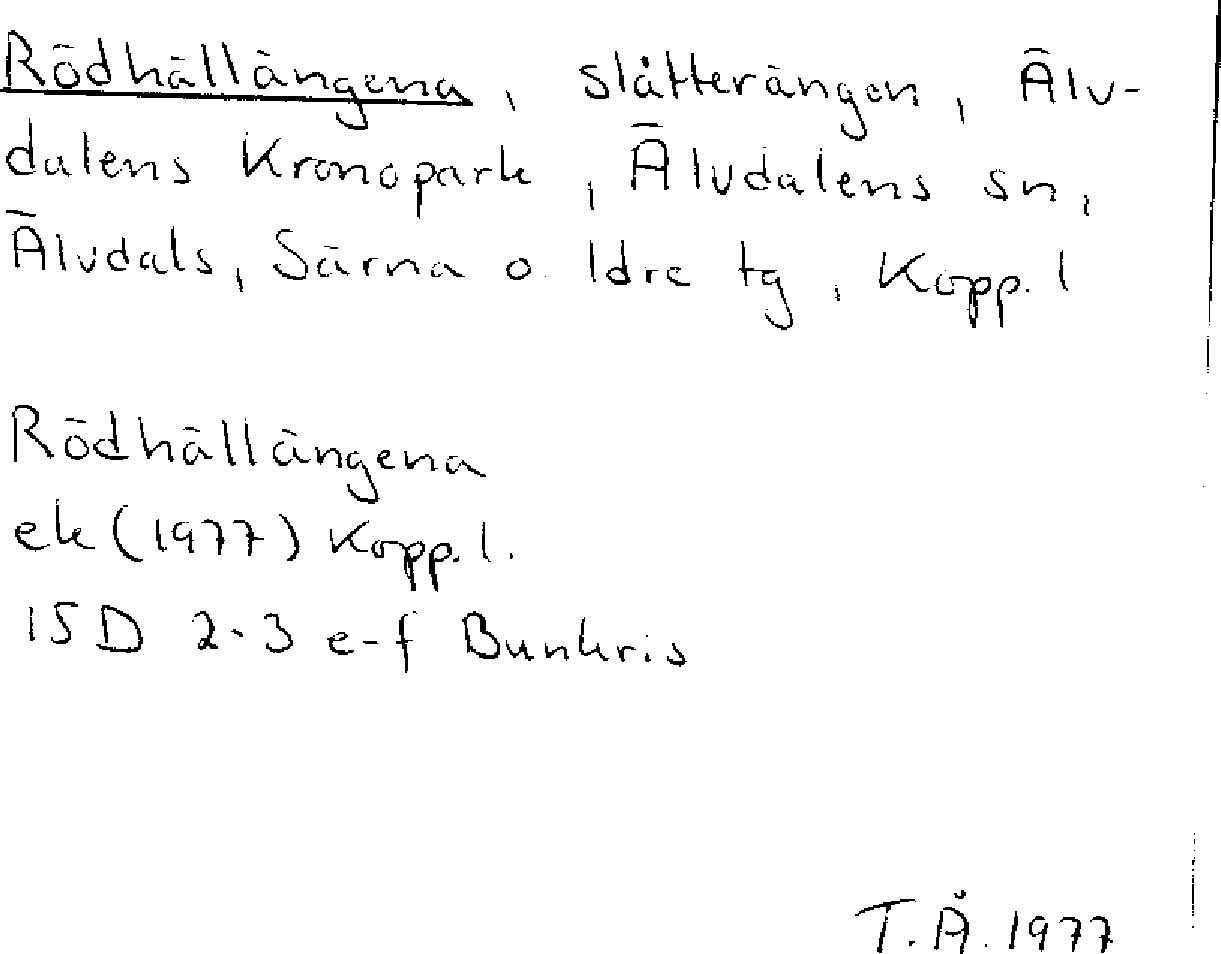 Rödhällängena, slåtterängen, Älv-
dalens Kronopark, Älvdalens sn,
Älvdals, Särna o. Idre tg, Kopp. l
Rödhällängena
ek (1977) Kopp. l.
15D 2-3 e-f Bunkris
T.Å. 1977